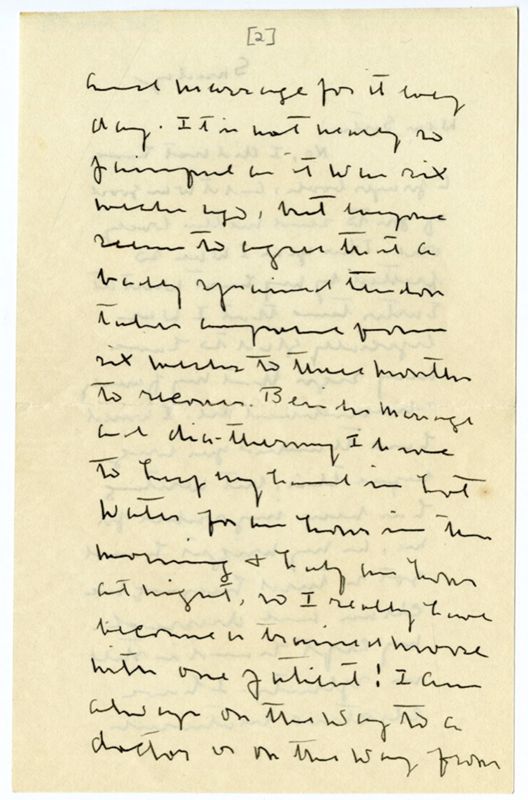 [2]
and massage for it every
day. It is not nearly so
painful as it was six
weeks ago, but everyone
seems to agree that a
badly sprained tendon
takes anywhere from
six weeks to three months
to recover. Besides massage
and dia-thermy I have
to keep my hand in hot
water for an hour in the
morning & half an hour
at night, so I really have
become a trained nurse
with one patient! I am
always on the way to a
doctor or on the way from